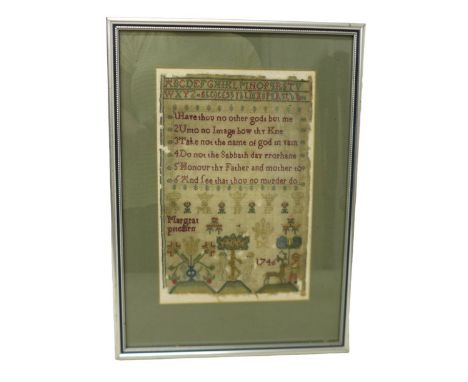 ABCDEFGHIKLMNOPQRSTV
WXYZ
1 Have thou no other gods but me
2 Unto no Image bow thy Kne
3 Take not the name of god in vain
4 Do not the Sabbath day prophane
5 Honour thy Father and mother to
6 And See that thou no murder do
Margrat
1746